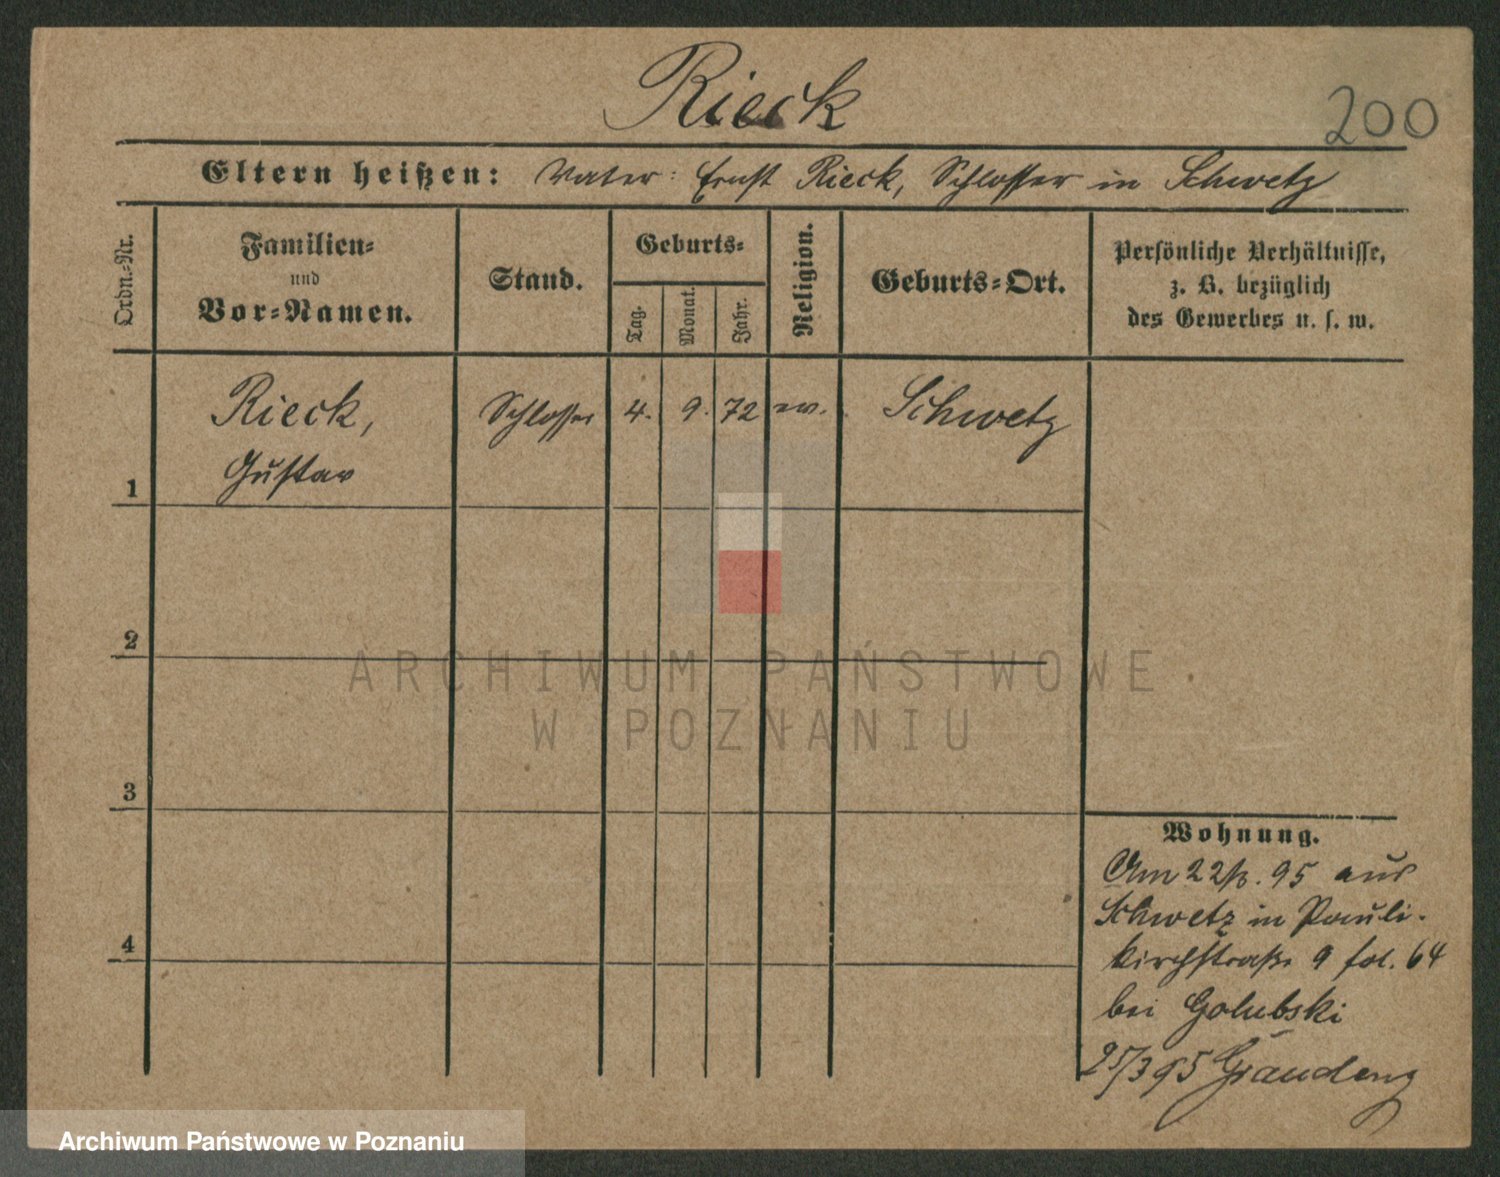 Rieck
200
Eltern heißen: Vater: Ernst Rieck, Schlosser in Schwetz
Ordn.-Nr.
Familien-
und
Vor-Namen.
Stand.
Geburts-
Tag.
Monat.
Jahr.
Religion.
Geburts-Ort.
Persönliche Verhältnisse,
z. B. bezüglich
des Gewerbes u. s. w.
1
Rieck,
Gustav
Schlosser
4.
9.
72
ev.
Schwetz
2
3
4
ARCHIWUM PAŃSTWOWE
W POZNANIU
Wohnung.
Am 22/3. 95 aus
Schwetz in Pauli-
kirchstraße 9 fol. 64
bei Golubski
25/3 95 Graudenz
Archiwum Państwowe w Poznaniu